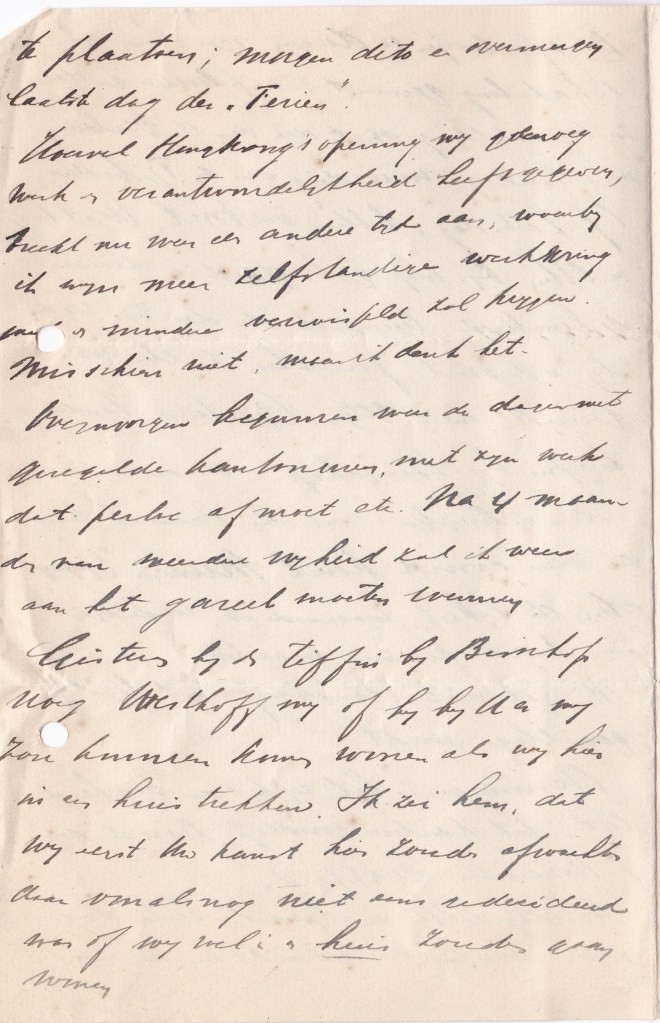 te plaatsen; morgen dito en overmorgen
laatste dag der "Ferien".
Hoewel Hongkong's opening my genoeg
werk en verantwoordelijkheid heeft gegeven,
breekt nu weer een andere tijd aan, waarby
ik mijn meer zelfstandige werkkring
met een mindere verwisseld zal krijgen.
Misschien niet, maar ik denk het.
Overmorgen beginnen weer de dagen met
geregelde kantooruren, met zijn werk
dat perse af moet etc. Na 4 maan-
den van meerdere vryheid zal ik weer
aan het gareel moeten wennen
Gisteren by de tiffin by Bisschop
vroeg Westhoff my of hy by U en my
zou kunnen komen wonen als wy hier
in een huis trekken. Ik zei hem, dat
wy eerst Uw komst hier zouden afwachten
daar vooralsnog niet eens gedecideerd
was of wy wel in een huis zouden gaan
wonen